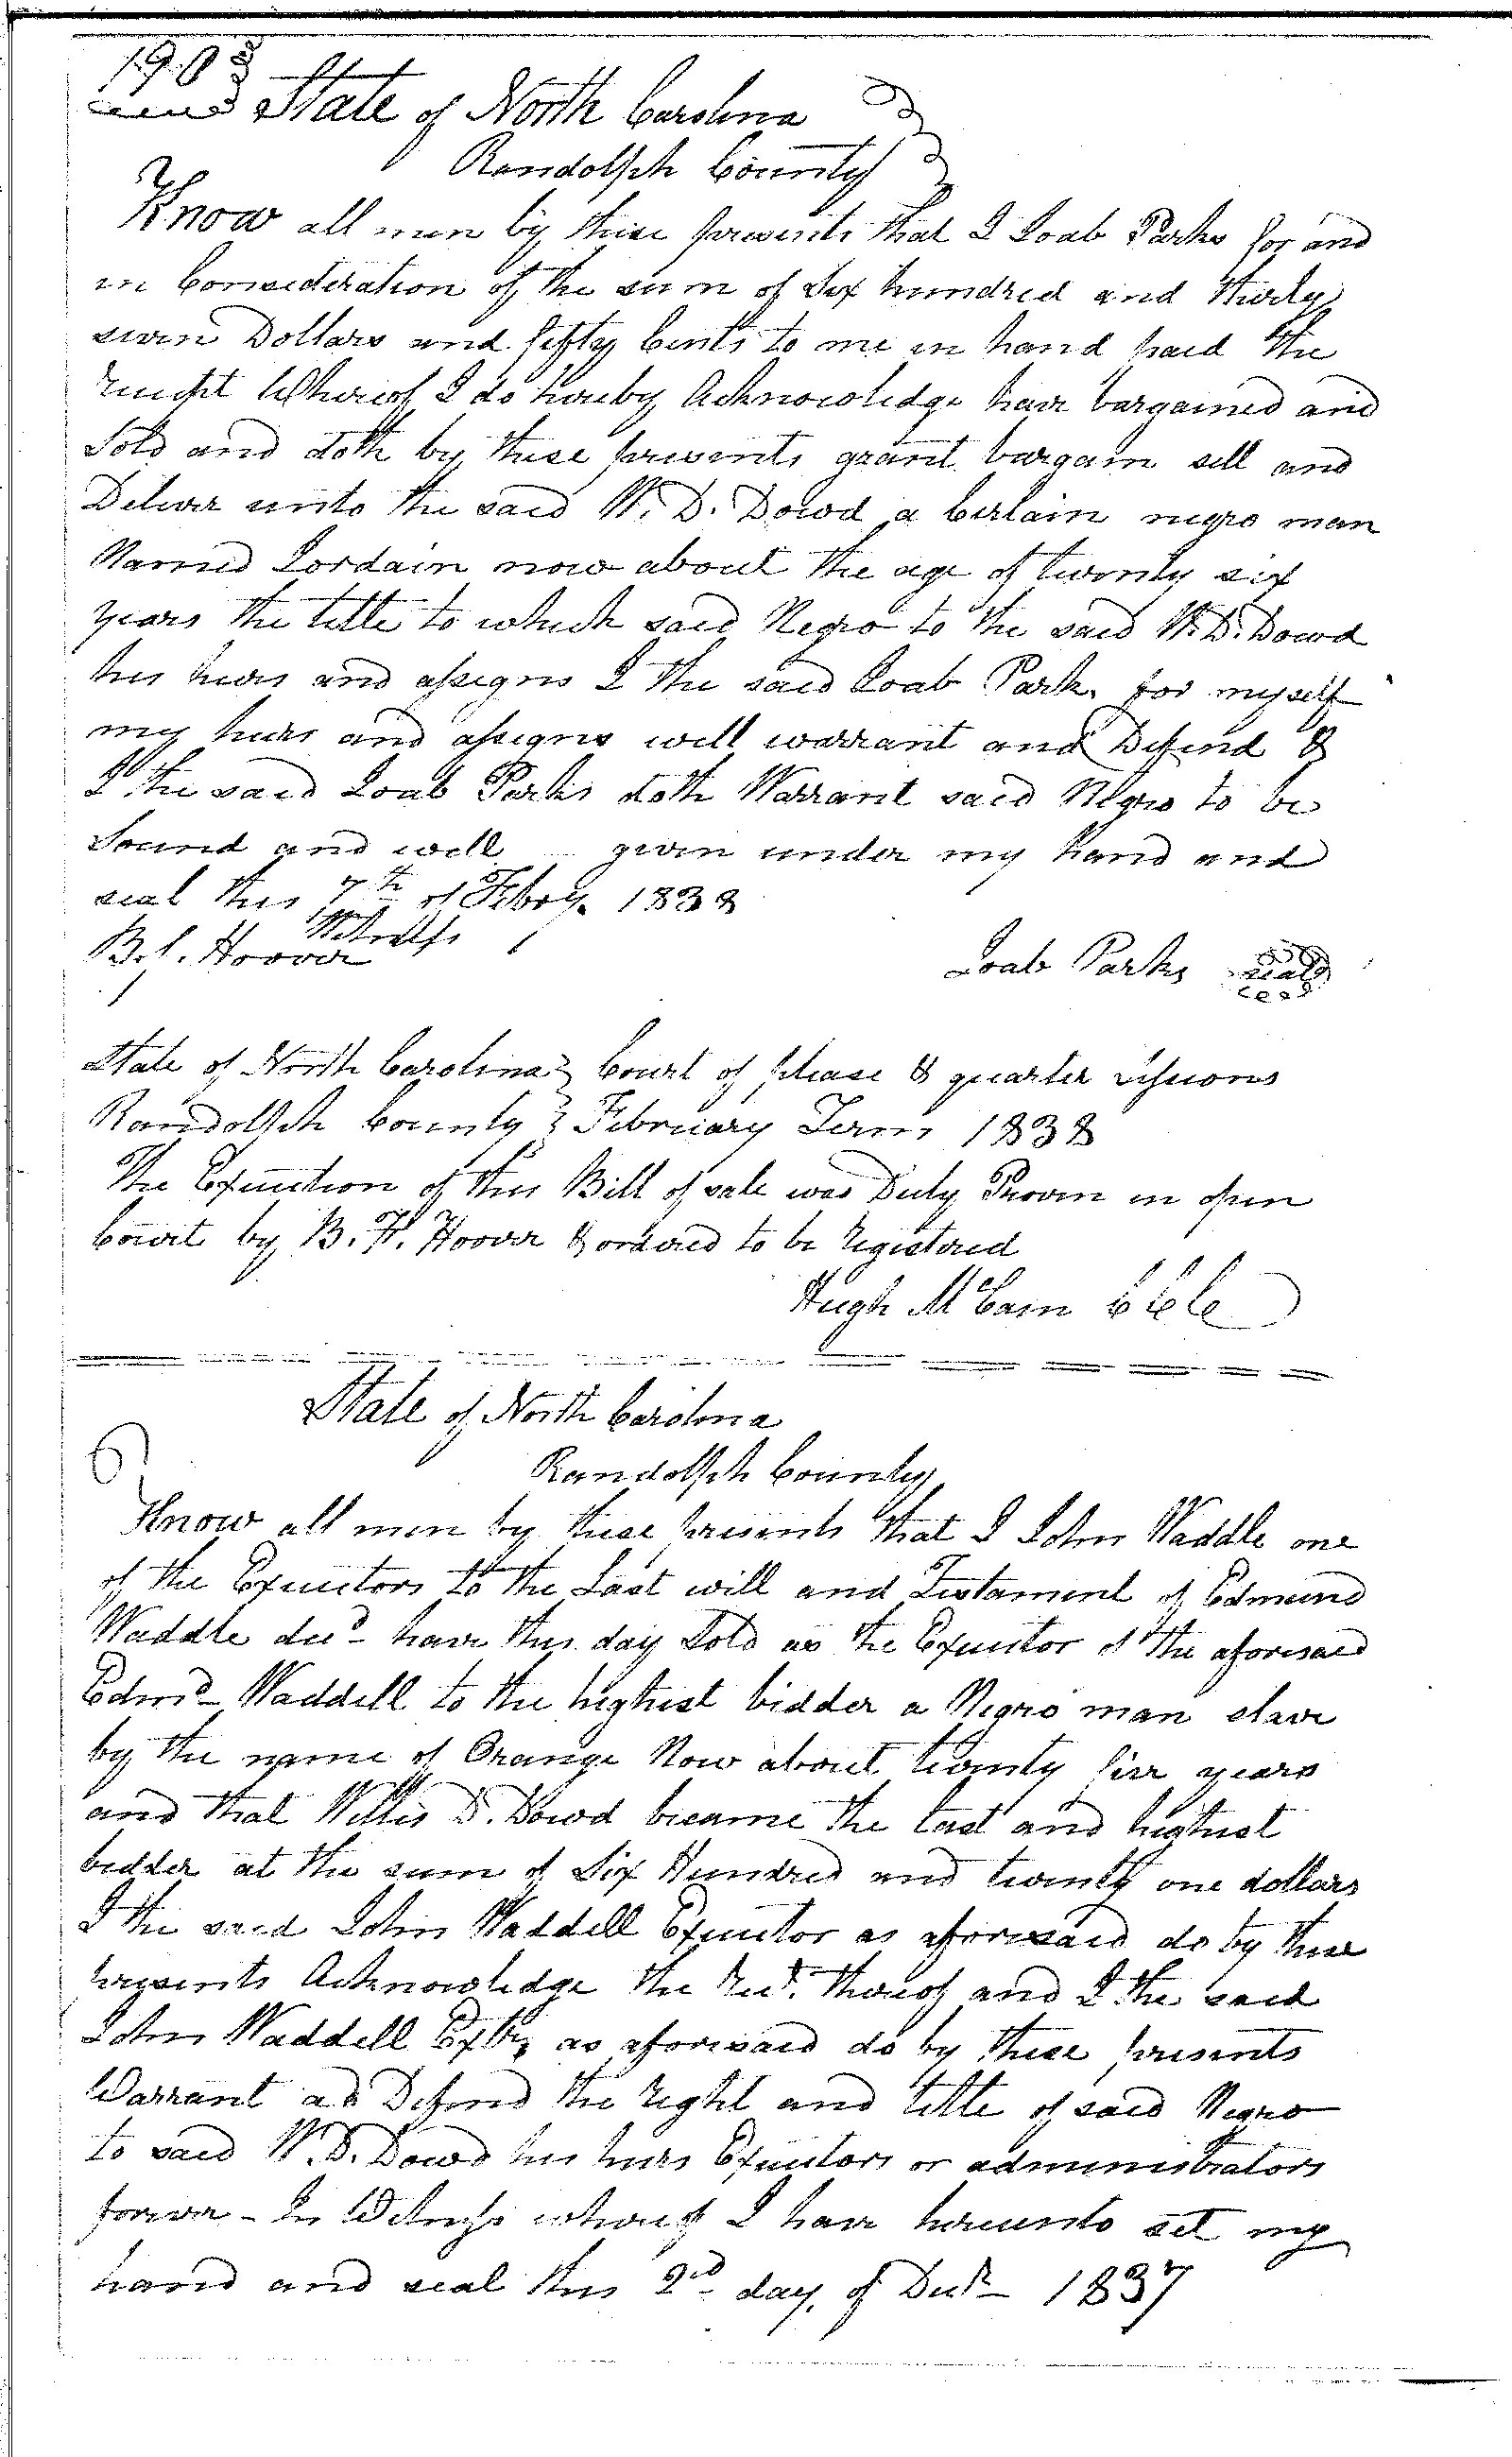 190
State of North Carolina
Randolph County
Know all men by these presents that I Joab Parks for and
in Consideration of the sum of Six hundred and thirty
seven Dollars and fifty Cents to me in hand paid the
receipt Whereof I do hereby Acknowledge have bargained and
Sold and doth by these presents grant bargain sell and
Deliver unto the said W. D. Dowd a Certain negro man
Named Jordain now about the age of twenty six
years the title to which said Negro to the said W. D. Dowd
his heirs and assigns I the said Joab Parks for myself
my heirs and assigns will warrant and Defend &
I the said Joab Parks doth Warrant said Negro to be
Sound and well given under my hand and
seal this 7th of Feby. 1838
Witness
B. F. Hoover
Joab Parks seal
State of North Carolina } Court of please & quarter sessions
Randolph County } February Term 1838
The Execution of this Bill of sale was Duly Proven in open
Court by B. F. Hoover & ordered to be registered
Hugh McCain CCC
State of North Carolina
Randolph County
Know all men by these presents that I John Waddle one
of the Executors to the Last will and Testament of Edmund
Waddle decd have this day Sold as the Executor of the aforesaid
Edmd Waddell to the highest bidder a Negro man slave
by the name of Orange Now about twenty five years
and that Willis D. Dowd became the last and highest
bidder at the sum of Six Hundred and twenty one dollars
I the said John Waddell Executor as aforesaid do by these
presents Acknowledge the Rect. thereof and I the said
John Waddell Extr as aforesaid do by these presents
Warrant ad Defend the right and title of said Negro
to said W. D. Dowd his heirs Executors or administrators
forever - In Witness whereof I have hereunto set my
hand and seal this 2nd day of Decr 1837